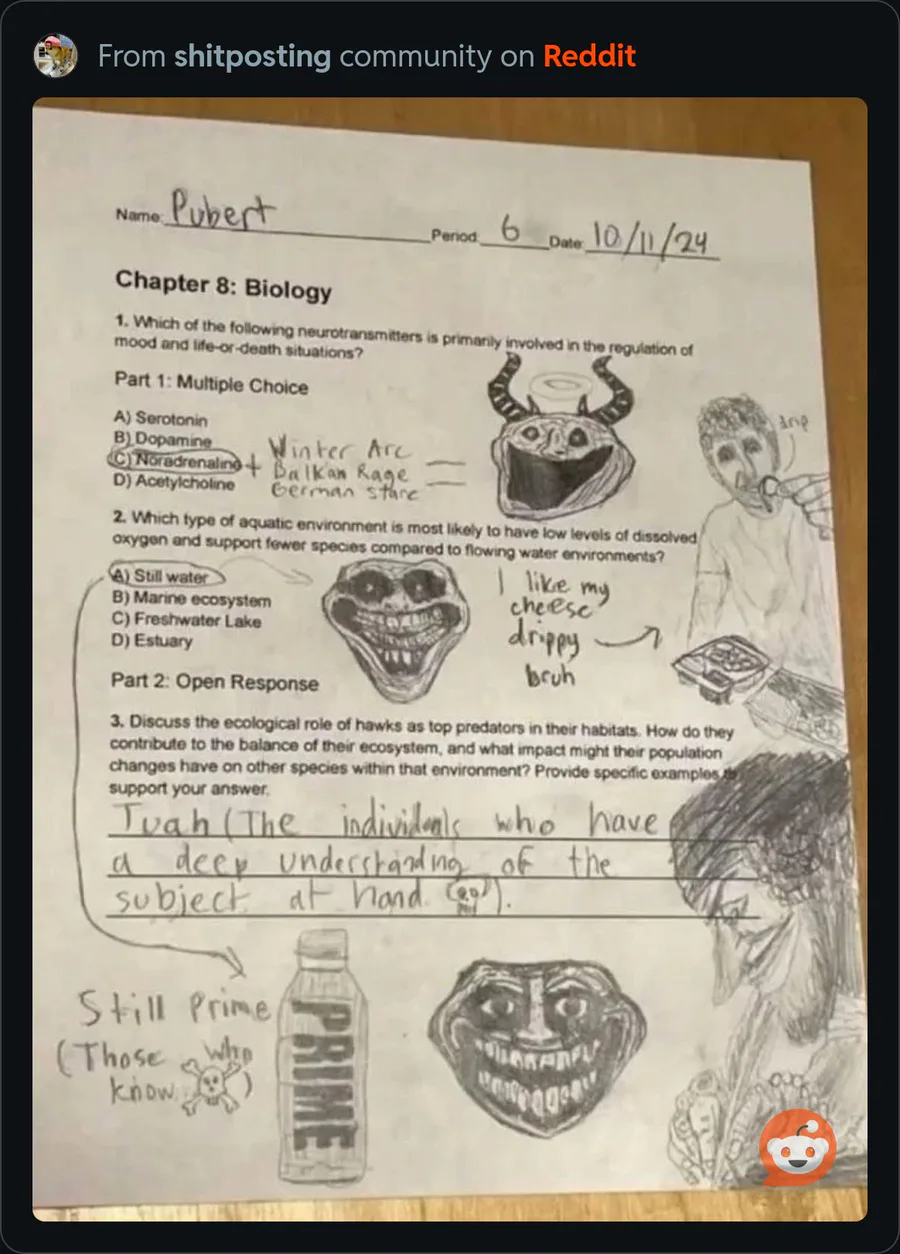 From shitposting community on Reddit
Name: Pubert Period: 6 Date: 10/11/24
Chapter 8: Biology
1. Which of the following neurotransmitters is primarily involved in the regulation of
mood and life-or-death situations?
Part 1: Multiple Choice
A) Serotonin
B) Dopamine
C) Noradrenaline
D) Acetylcholine
+ Winter Arc
Balkan Rage
German stare
=
drip
2. Which type of aquatic environment is most likely to have low levels of dissolved
oxygen and support fewer species compared to flowing water environments?
A) Still water
B) Marine ecosystem
C) Freshwater Lake
D) Estuary
I like my
cheese
drippy
bruh
Part 2: Open Response
3. Discuss the ecological role of hawks as top predators in their habitats. How do they
contribute to the balance of their ecosystem, and what impact might their population
changes have on other species within that environment? Provide specific examples to
support your answer.
Tuah (The individuals who have
a deep understanding of the
subject at hand ).
Still Prime
(Those who
know )
PRIME